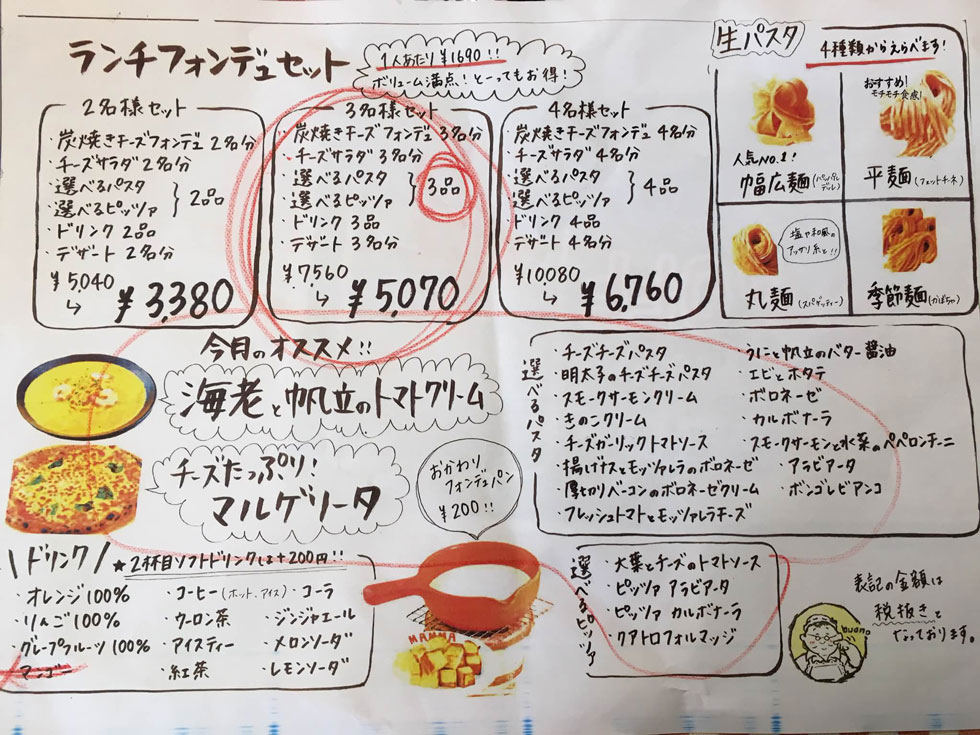 ランチフォンデュセット
1人あたり¥1690!!
ボリューム満点!とってもお得!
2名様セット
・炭焼きチーズフォンデュ 2名分
・チーズサラダ 2名分
・選べるパスタ
・選べるピッツァ
2品
・ドリンク 2品
・デザート 2名分
¥5,040
↳ ¥3,380
3名様セット
・炭焼きチーズフォンデュ 3名分
・チーズサラダ 3名分
・選べるパスタ
・選べるピッツァ
3品
・ドリンク 3品
・デザート 3名分
¥7,560
↳ ¥5,070
4名様セット
・炭焼きチーズフォンデュ 4名分
・チーズサラダ 4名分
・選べるパスタ
・選べるピッツァ
4品
・ドリンク 4品
・デザート 4名分
¥10080
↳ ¥6,760
生パスタ
4種類からえらべます!
人気No.1!
幅広麺(パッパルデッレ)
おすすめ!
モチモチ食感!
平麺(フェットチーネ)
塩や和風の
アッサリ系と!!
丸麺(スパゲッティー)
季節麺(かぼちゃ)
今月のオススメ!!
海老と帆立のトマトクリーム
チーズたっぷり!
マルゲリータ
おかわり
フォンデュパン
¥200!!
選べるパスタ
・チーズチーズパスタ
・明太子のチーズチーズパスタ
・スモークサーモンクリーム
・きのこクリーム
・チーズガーリックトマトソース
・揚げナスとモッツァレラのボロネーゼ
・厚切りベーコンのボロネーゼクリーム
・フレッシュトマトとモッツァレラチーズ
・うにと帆立のバター醤油
・エビとホタテ
・ボロネーゼ
・カルボナーラ
・スモークサーモンと水菜のペペロンチーニ
・アラビアータ
・ボンゴレビアンコ
ドリンク
★2杯目ソフトドリンクは+200円!!
・オレンジ100%
・りんご100%
・グレープフルーツ100%
・マンゴー
・コーヒー(ホット、アイス)
・ウーロン茶
・アイスティー
・紅茶
・コーラ
・ジンジャエール
・メロンソーダ
・レモンソーダ
MAMMA
選べるピッツァ
・大葉とチーズのトマトソース
・ピッツァ アラビアータ
・ピッツァ カルボナーラ
・クアトロフォルマッジ
表記の金額は
税抜きと
なっております
buono